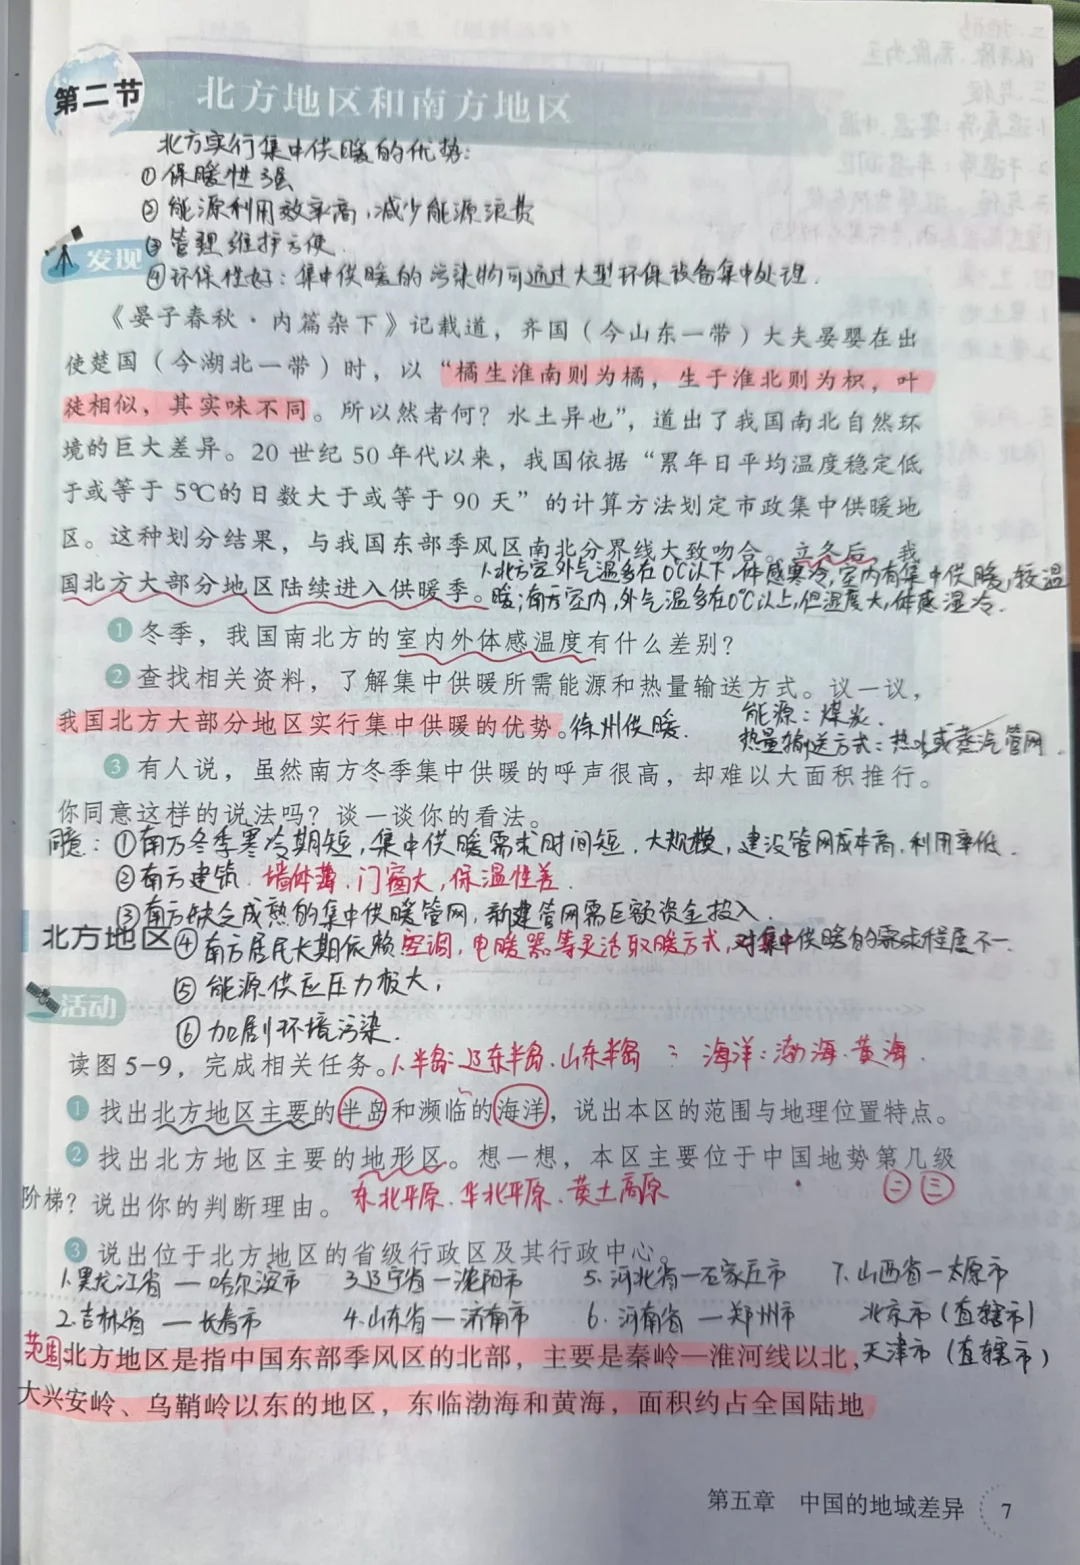 第二节 北方地区和南方地区
北方实行集中供暖的优势:
①保暖性强
②能源利用效率高,减少能源浪费
③管理维护方便.
发现
④环保性好:集中供暖的污染物可通过大型环保设备集中处理.
《晏子春秋·内篇杂下》记载道，齐国（今山东一带）大夫晏婴在出
使楚国（今湖北一带）时，以“橘生淮南则为橘，生于淮北则为枳，叶
徒相似，其实味不同。所以然者何？水土异也”，道出了我国南北自然环
境的巨大差异。20 世纪 50 年代以来，我国依据“累年日平均温度稳定低
于或等于 5℃的日数大于或等于 90 天”的计算方法划定市政集中供暖地
区。这种划分结果，与我国东部季风区南北分界线大致吻合。立冬后，我
国北方大部分地区陆续进入供暖季。
1.北方室外气温多在0℃以下,体感寒冷,室内有集中供暖,较温
暖;南方室内,外气温多在0℃以上,但湿度大,体感湿冷.
1 冬季，我国南北方的室内外体感温度有什么差别？
2 查找相关资料，了解集中供暖所需能源和热量输送方式。议一议，
我国北方大部分地区实行集中供暖的优势。徐州供暖.
能源:煤炭.
热量输送方式:热水或蒸汽管网.
3 有人说，虽然南方冬季集中供暖的呼声很高，却难以大面积推行。
你同意这样的说法吗？谈一谈你的看法。
同意:①南方冬季寒冷期短,集中供暖需求时间短,大规模,建设管网成本高,利用率低.
②南方建筑.墙体薄.门窗大,保温性差.
③南方缺乏成熟的集中供暖管网,新建管网需巨额资金投入.
北方地区
④南方居民长期依赖空调,电暖器等灵活取暖方式,对集中供暖的需求程度不一.
⑤能源供应压力极大,
活动
⑥加剧环境污染.
读图 5-9，完成相关任务。1.半岛:辽东半岛.山东半岛;海洋:渤海.黄海.
1 找出北方地区主要的半岛和濒临的海洋，说出本区的范围与地理位置特点。
2 找出北方地区主要的地形区。想一想，本区主要位于中国地势第几级
阶梯？说出你的判断理由。东北平原.华北平原.黄土高原 二 三
3 说出位于北方地区的省级行政区及其行政中心。
1.黑龙江省—哈尔滨市 3.辽宁省—沈阳市 5.河北省—石家庄市 7.山西省—太原市
2.吉林省—长春市 4.山东省—济南市 6.河南省—郑州市 北京市(直辖市)
范围:北方地区是指中国东部季风区的北部，主要是秦岭—淮河线以北，天津市(直辖市)
大兴安岭、乌鞘岭以东的地区，东临渤海和黄海，面积约占全国陆地
第五章 中国的地域差异 7